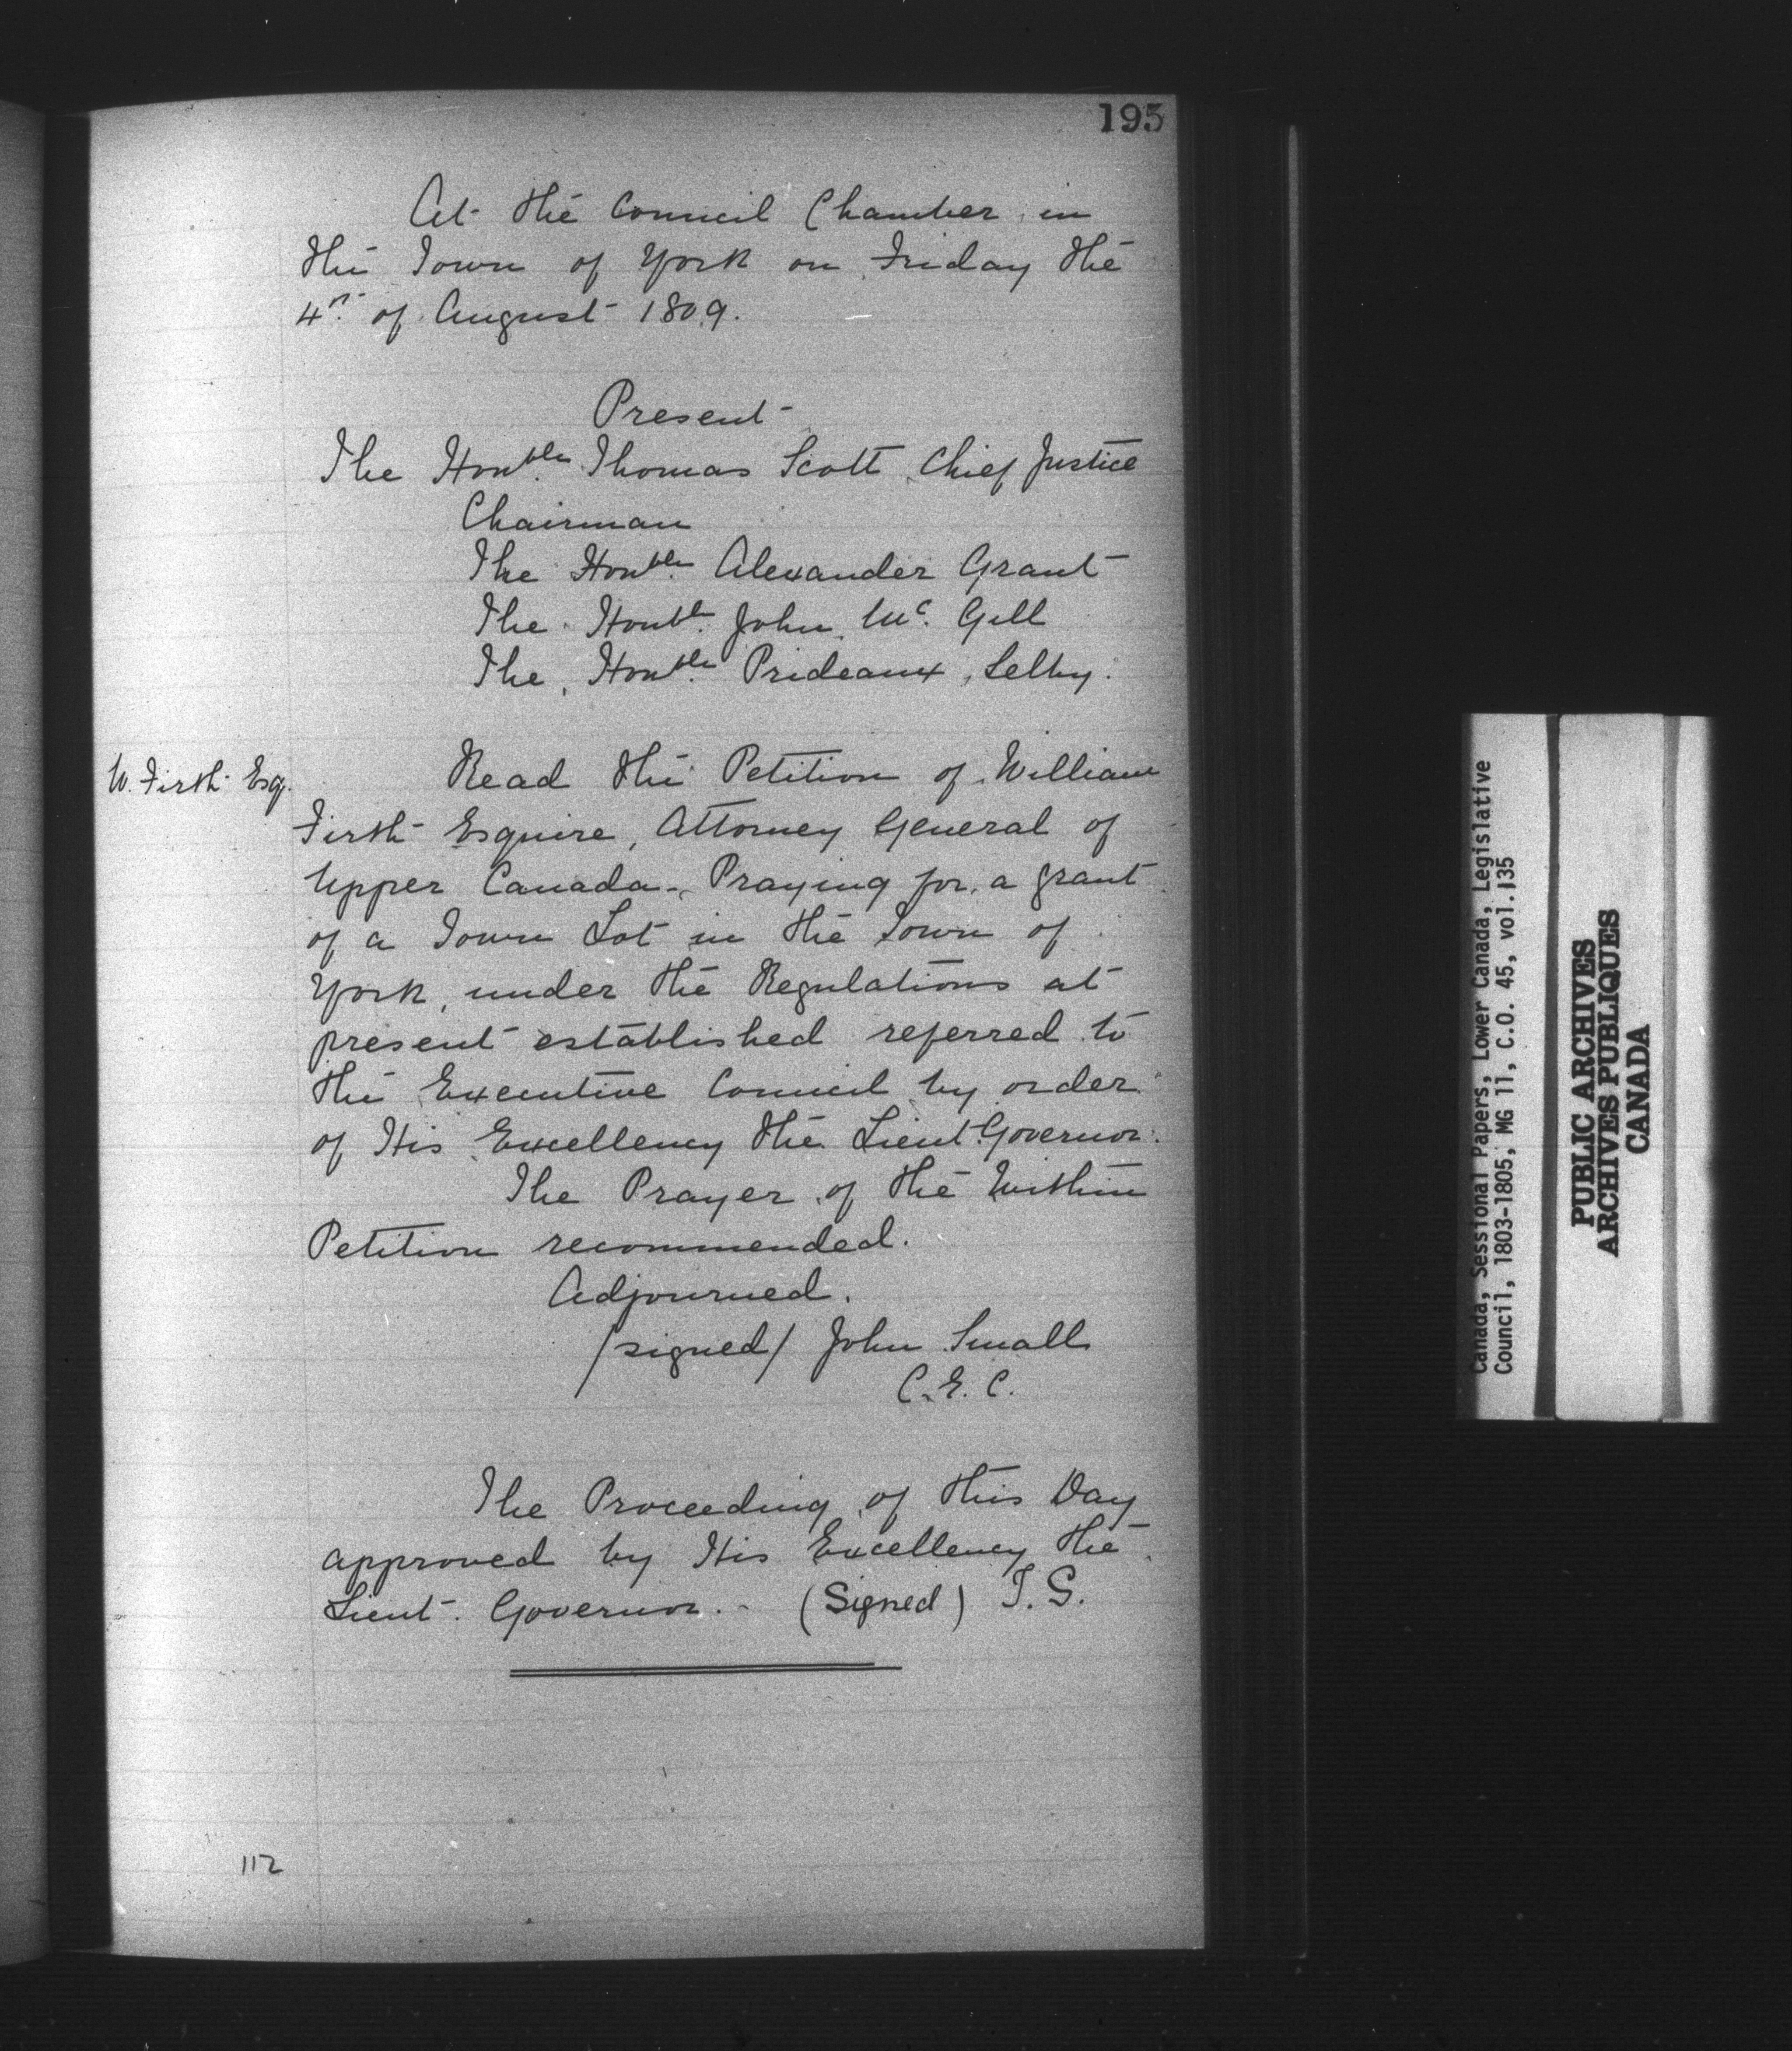 195
At the Council Chamber in
the Town of York on Friday the
4th. of August 1809.
Present
The Honble. Thomas Scott Chief Justice
Chairman
The Honble. Alexander Grant
The Honble. John Mc. Gill
The Honble. Prideaux Selby.
W. Firth Esq.
Read the Petition of William
Firth Esquire, Attorney General of
Upper Canada - Praying for a grant
of a Town Lot in the Town of
York, under the Regulations at
present established referred to
the Executive Council by order
of His Excellency the Lieut. Governor.
The Prayer of the Within
Petition recommended.
Adjourned.
/signed/ John Small
C. E. C.
The Proceeding of this Day
approved by His Excellency the
Lieut. Governor. - (Signed) T. G.
112
Canada, Sessional Papers, Lower Canada, Legislative
Council, 1803-1805, MG 11, C.O. 45, vol.135
PUBLIC ARCHIVES
ARCHIVES PUBLIQUES
CANADA